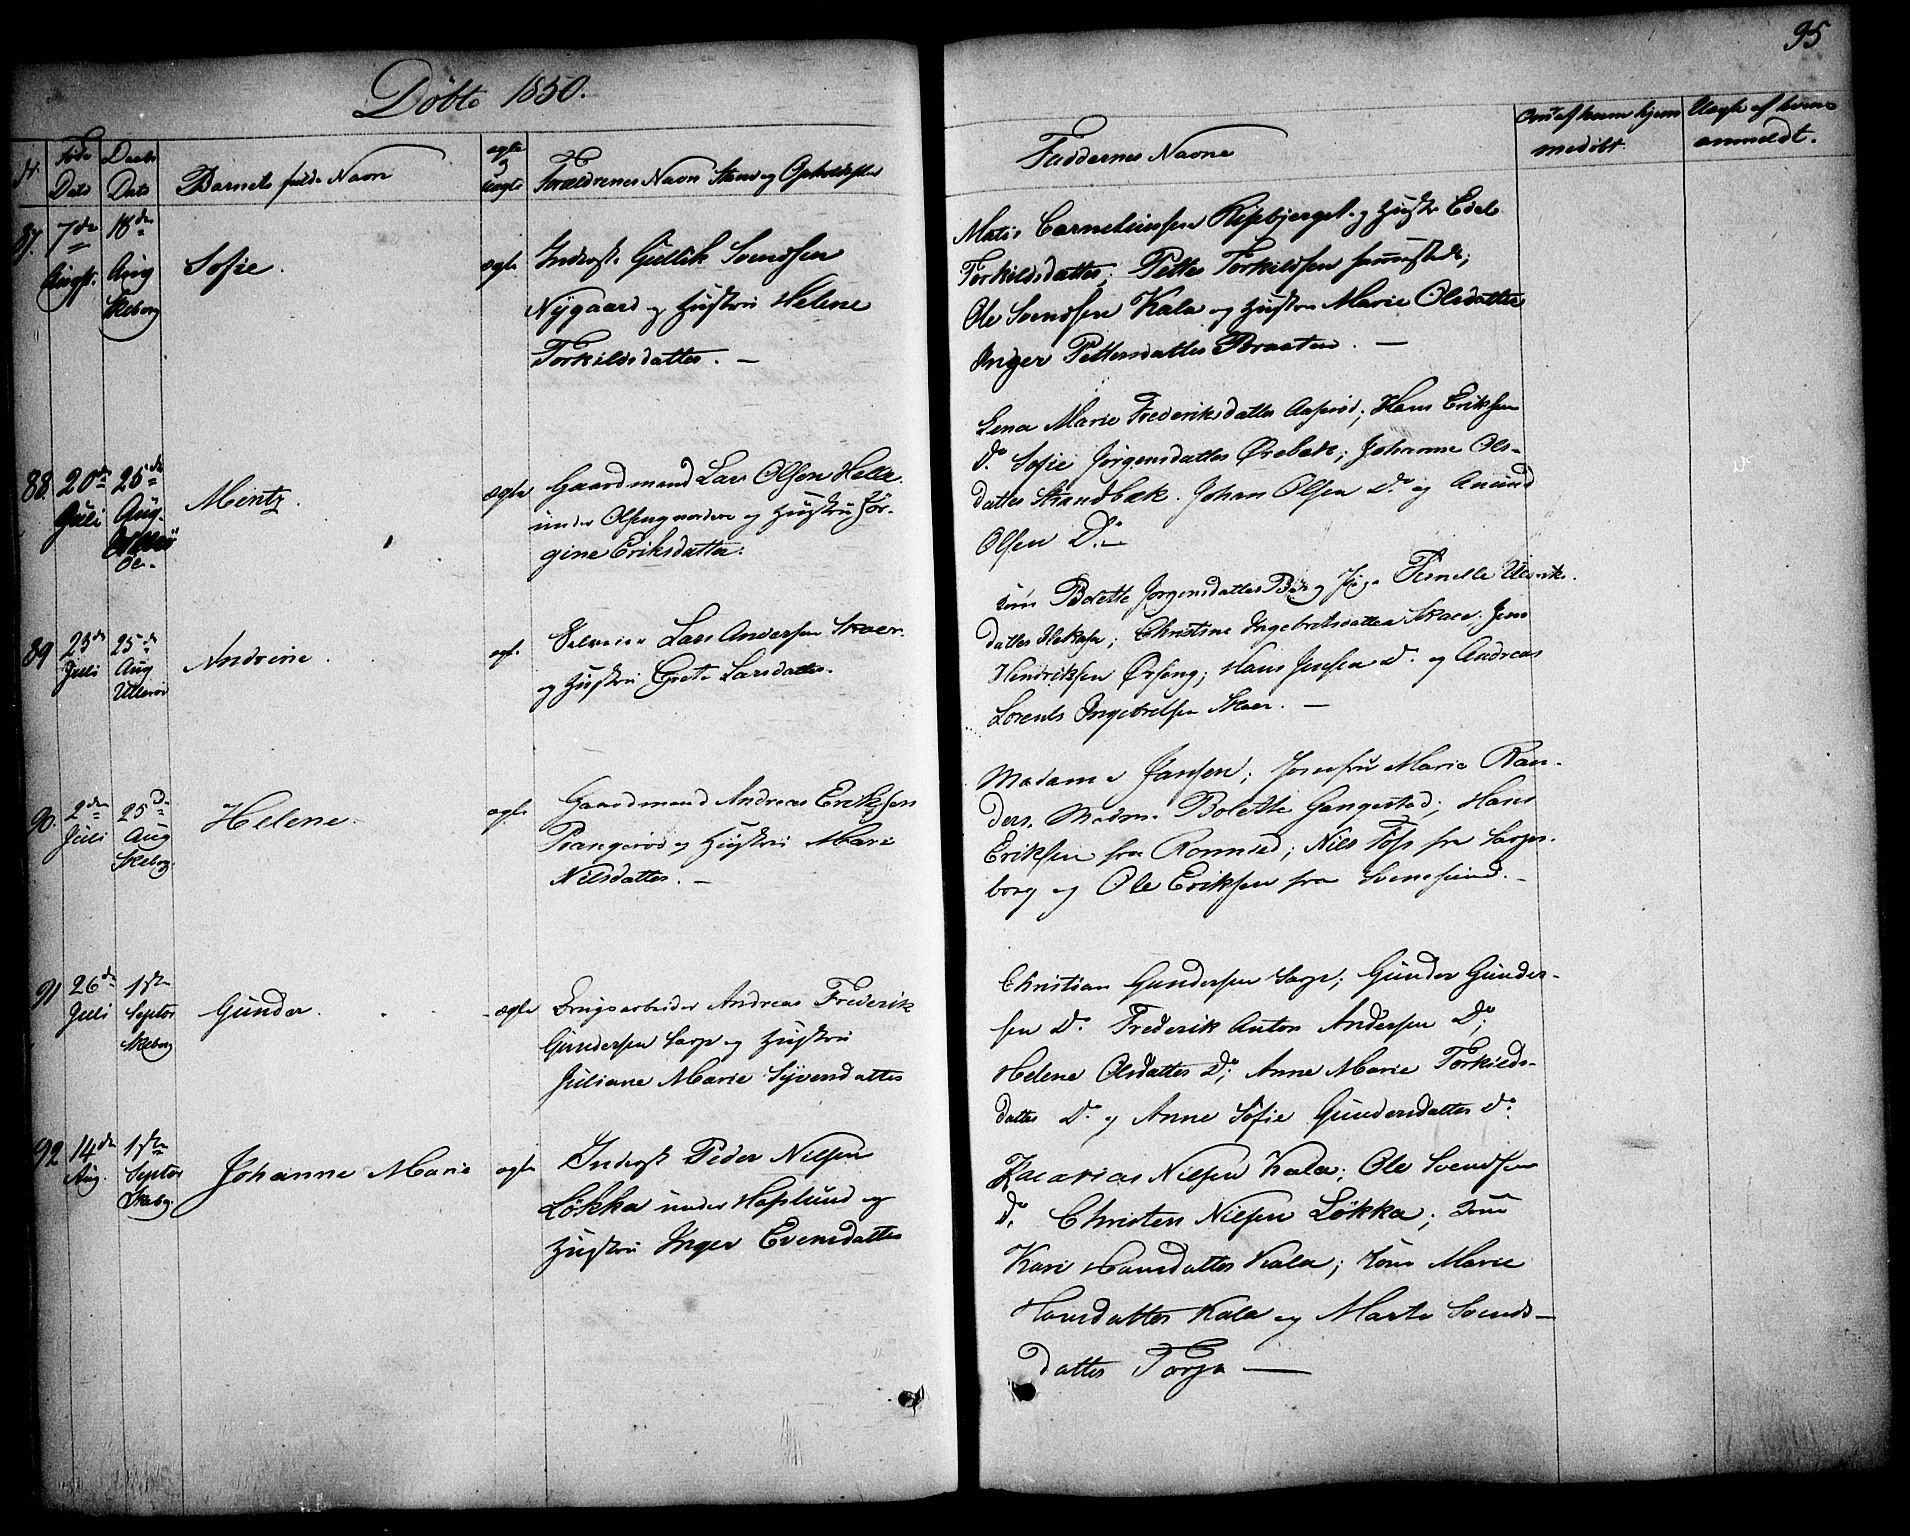 95
Döbte 1850.
N.
Føde Dato
Daabs Dato
Barnets fulde Navn
ægte og uægte
Forældrenes Navn Stand og Opholdssted
Faddernes Navne
Om af hvem hjemmedöbt
Uægte af hvem anmeldt.
87. 7de Augst.
18de Aug Skeberg
Sofie.
ægte
Inderst. Gullik Svendsen
Nygaard og Hustru Helene
Torkildsdatter. —
Matis Corneliussen Kisbjerget og Hustr. Edel
Torkildsdatter; Petter Torkildsen sammestads;
Ole Svendsen Kala og Hustru Marie Olsdatter
Inger Pettersdatter Braaten. —
88. 20de Juli
25de Aug.
Mintz.
ægte
Gaardmand Lars Olsen Helle
under Olseng nordere og Hustru Jör-
gine Eriksdatter.
Lena Marie Frederiksdatter Aaserød; Hans Eriksen
Do. Sofie Jørgensdatter Ørebæk; Johanne Ols-
datter Strandbæk. Johan Olsen Do og Amund
Olsen Do. —
89 23de Juli
25de Aug Ullerøi
Andrine.
ægte
Selveier Lars Andersen Skaer.
og Hustru Grete Larsdatter.
Bolette Jørgensdatter Berg Pernelle Ulrriks.
datter; Christine Ingebretsdatter Skaer. Jens
Hendriksen Ørseng; Hans Jensen Do. og Andreas
Lorents Ingebretsen Skaer. —
90. 2den Juli
25de Aug Skeberg
Helene.
ægte
Gaardmand Andreas Eriksen
Prangerød og Hustru Mari
Nilsdatter. —
Madame Jansen; Jomfru Marie Ran-
ders. Madm. Bolette Hangestad; Hans
Eriksen fra Romsed; Nils Foss fra Sarps-
borg og Ole Eriksen fra Svenesund. —
91 26de Juli
1ste Septer Skeberg
Günder.
ægte
Brugsarbeider Andreas Frederik
Gundersen Sarp og Hustru
Juliane Marie Syvendatter
Christian Gundersen Sarp; Günder Günder-
sen Do. Frederik Anton Andersen Do;
Helene Olsdatter Do; Anne Marie Torkilds-
datter Do. og Anne Sofie Gundersdatter Do.
92 14de Aug.
1ste Septer Skebg.
Johanne Marie
ægte
Inderst Peder Nilsen
Løkka under Hafslund og
Hustru Inger Evensdatter
Zacarias Nilsen Kala; Ole Svendsen
Do. Christen Nilsen Løkka;
Kari Hansdatter Kala; Marie
Hansdatter Kala og Marte Svends-
datter Torp —